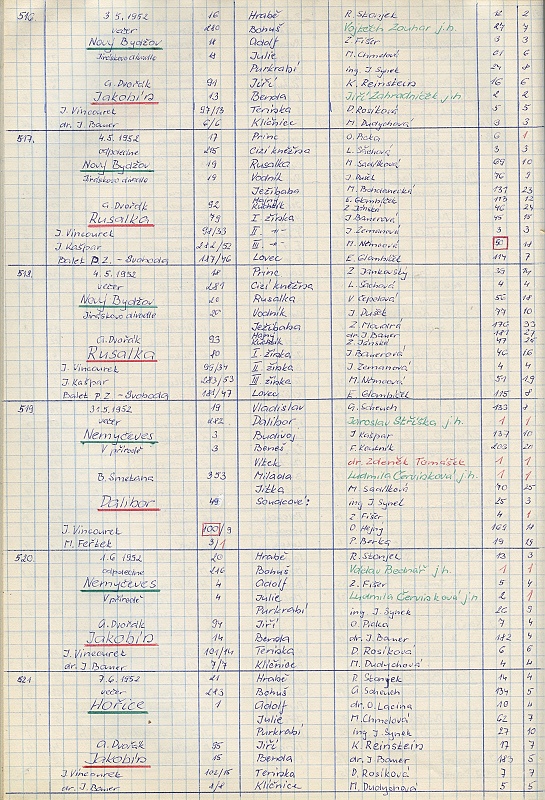 516. 3.5.1952 16 Hrabě R. Stanjek 12 2
večer 210 Bohuš Vojtěch Zouhar j.h. 27 4
Nový Bydžov 18 Adolf Z. Fišer 3 3
Jiráskovo divadlo 18 Julie M. Chmelová 61 6
Purkrabí ing. J. Synek 24 8
A. Dvořák 91 Jiří K. Reinstein 16 6
Jakobín 13 Benda Jiří Zahradníček j.h. 2 2
J. Vincourek 97/13 Terinka D. Rosíková 5 5
dr. J. Bauer 6/6 Klíčnice M. Dudychová 3 3
517. 4.5.1952 17 Princ O. Picka 6 1
odpoledne 215 Cizí kněžna L. Sachová 3 3
Nový Bydžov 19 Rusalka M. Sadílková 69 10
Jiráskovo divadlo 19 Vodník J. Pušek 76 9
Ježibaba M. Bohdanecká 131 23
Hajný E. Glombíček 113 12
A. Dvořák 92 Kuchtík Z. Jánská 46 24
Rusalka 79 I žínka J. Bauerová 45 15
J. Vincourek 98/33 II -"- J. Zemanová 3 3
J. Kašpar 212/52 III -"- M. Němcová 50 11
Balet P.Z. - Svoboda 117/46 Lovec E. Glombíček 114 7
518. 4.5.1952 18 Princ Z. Jankovský 39 24
večer 281 Cizí kněžna L. Sachová 4 4
Nový Bydžov 20 Rusalka V. Čepolová 56 18
Jiráskovo divadlo 20 Vodník J. Pušek 77 10
Ježibaba Z. Moudrá 176 33
Hajný dr. J. Bauer 181 27
A. Dvořák 93 Kuchtík Z. Jánská 47 25
Rusalka 80 I. žínka J. Bauerová 46 16
J. Vincourek 99/34 II žínka J. Zemanová 4 4
J. Kašpar 213/53 III žínka M. Němcová 51 19
Balet P.Z. - Svoboda 118/47 Lovec E. Glombíček 115 8
519 31.5.1952 19 Vladislav G. Scheuch 133 8
večer 212 Dalibor Jaroslav Stříška j.h. 1 1
Nemyčeves 3 Budivoj J. Kašpar 137 10
V přírodě 3 Beneš F. Koutník 203 21
Vítek dr. Zdeněk Tomášek 1 1
B. Smetana 353 Milada Ludmila Červinková j.h. 1 1
Jitka M. Sadílková 70 25
Dalibor 49 Soudcové: ing. J. Synek 25 3
Z. Fišer 4 1
J. Vincourek 100/9 O. Hejný 169 11
M. Feřbek 3/1 P. Berka 19 19
520. 1.6.1952 20 Hrabě R. Stanjek 13 3
odpoledne 216 Bohuš Václav Bednář j.h. 1 1
Nemyčeves 4 Adolf Z. Fišer 5 4
V přírodě 4 Julie Ludmila Červinková j.h. 2 1
Purkrabí ing. J. Synek 26 9
A. Dvořák 94 Jiří O. Picka 7 4
Jakobín 14 Benda dr. J. Bauer 182 4
J. Vincourek 101/14 Terinka D. Rosíková 6 6
dr. J. Bauer 7/7 Klíčnice M. Dudychová 4 4
521 7.6.1952 21 Hrabě R. Stanjek 14 4
večer 213 Bohuš G. Scheuch 134 5
Hořice 1 Adolf dr. O. Lacina 10 4
Julie M. Chmelová 62 7
Purkrabí ing. J. Synek 27 10
A. Dvořák 95 Jiří K. Reinstein 17 7
Jakobín 15 Benda dr. J. Bauer 183 5
J. Vincourek 102/15 Terinka D. Rosíková 7 7
dr. J. Bauer 8/8 Klíčnice M. Dudychová 5 5